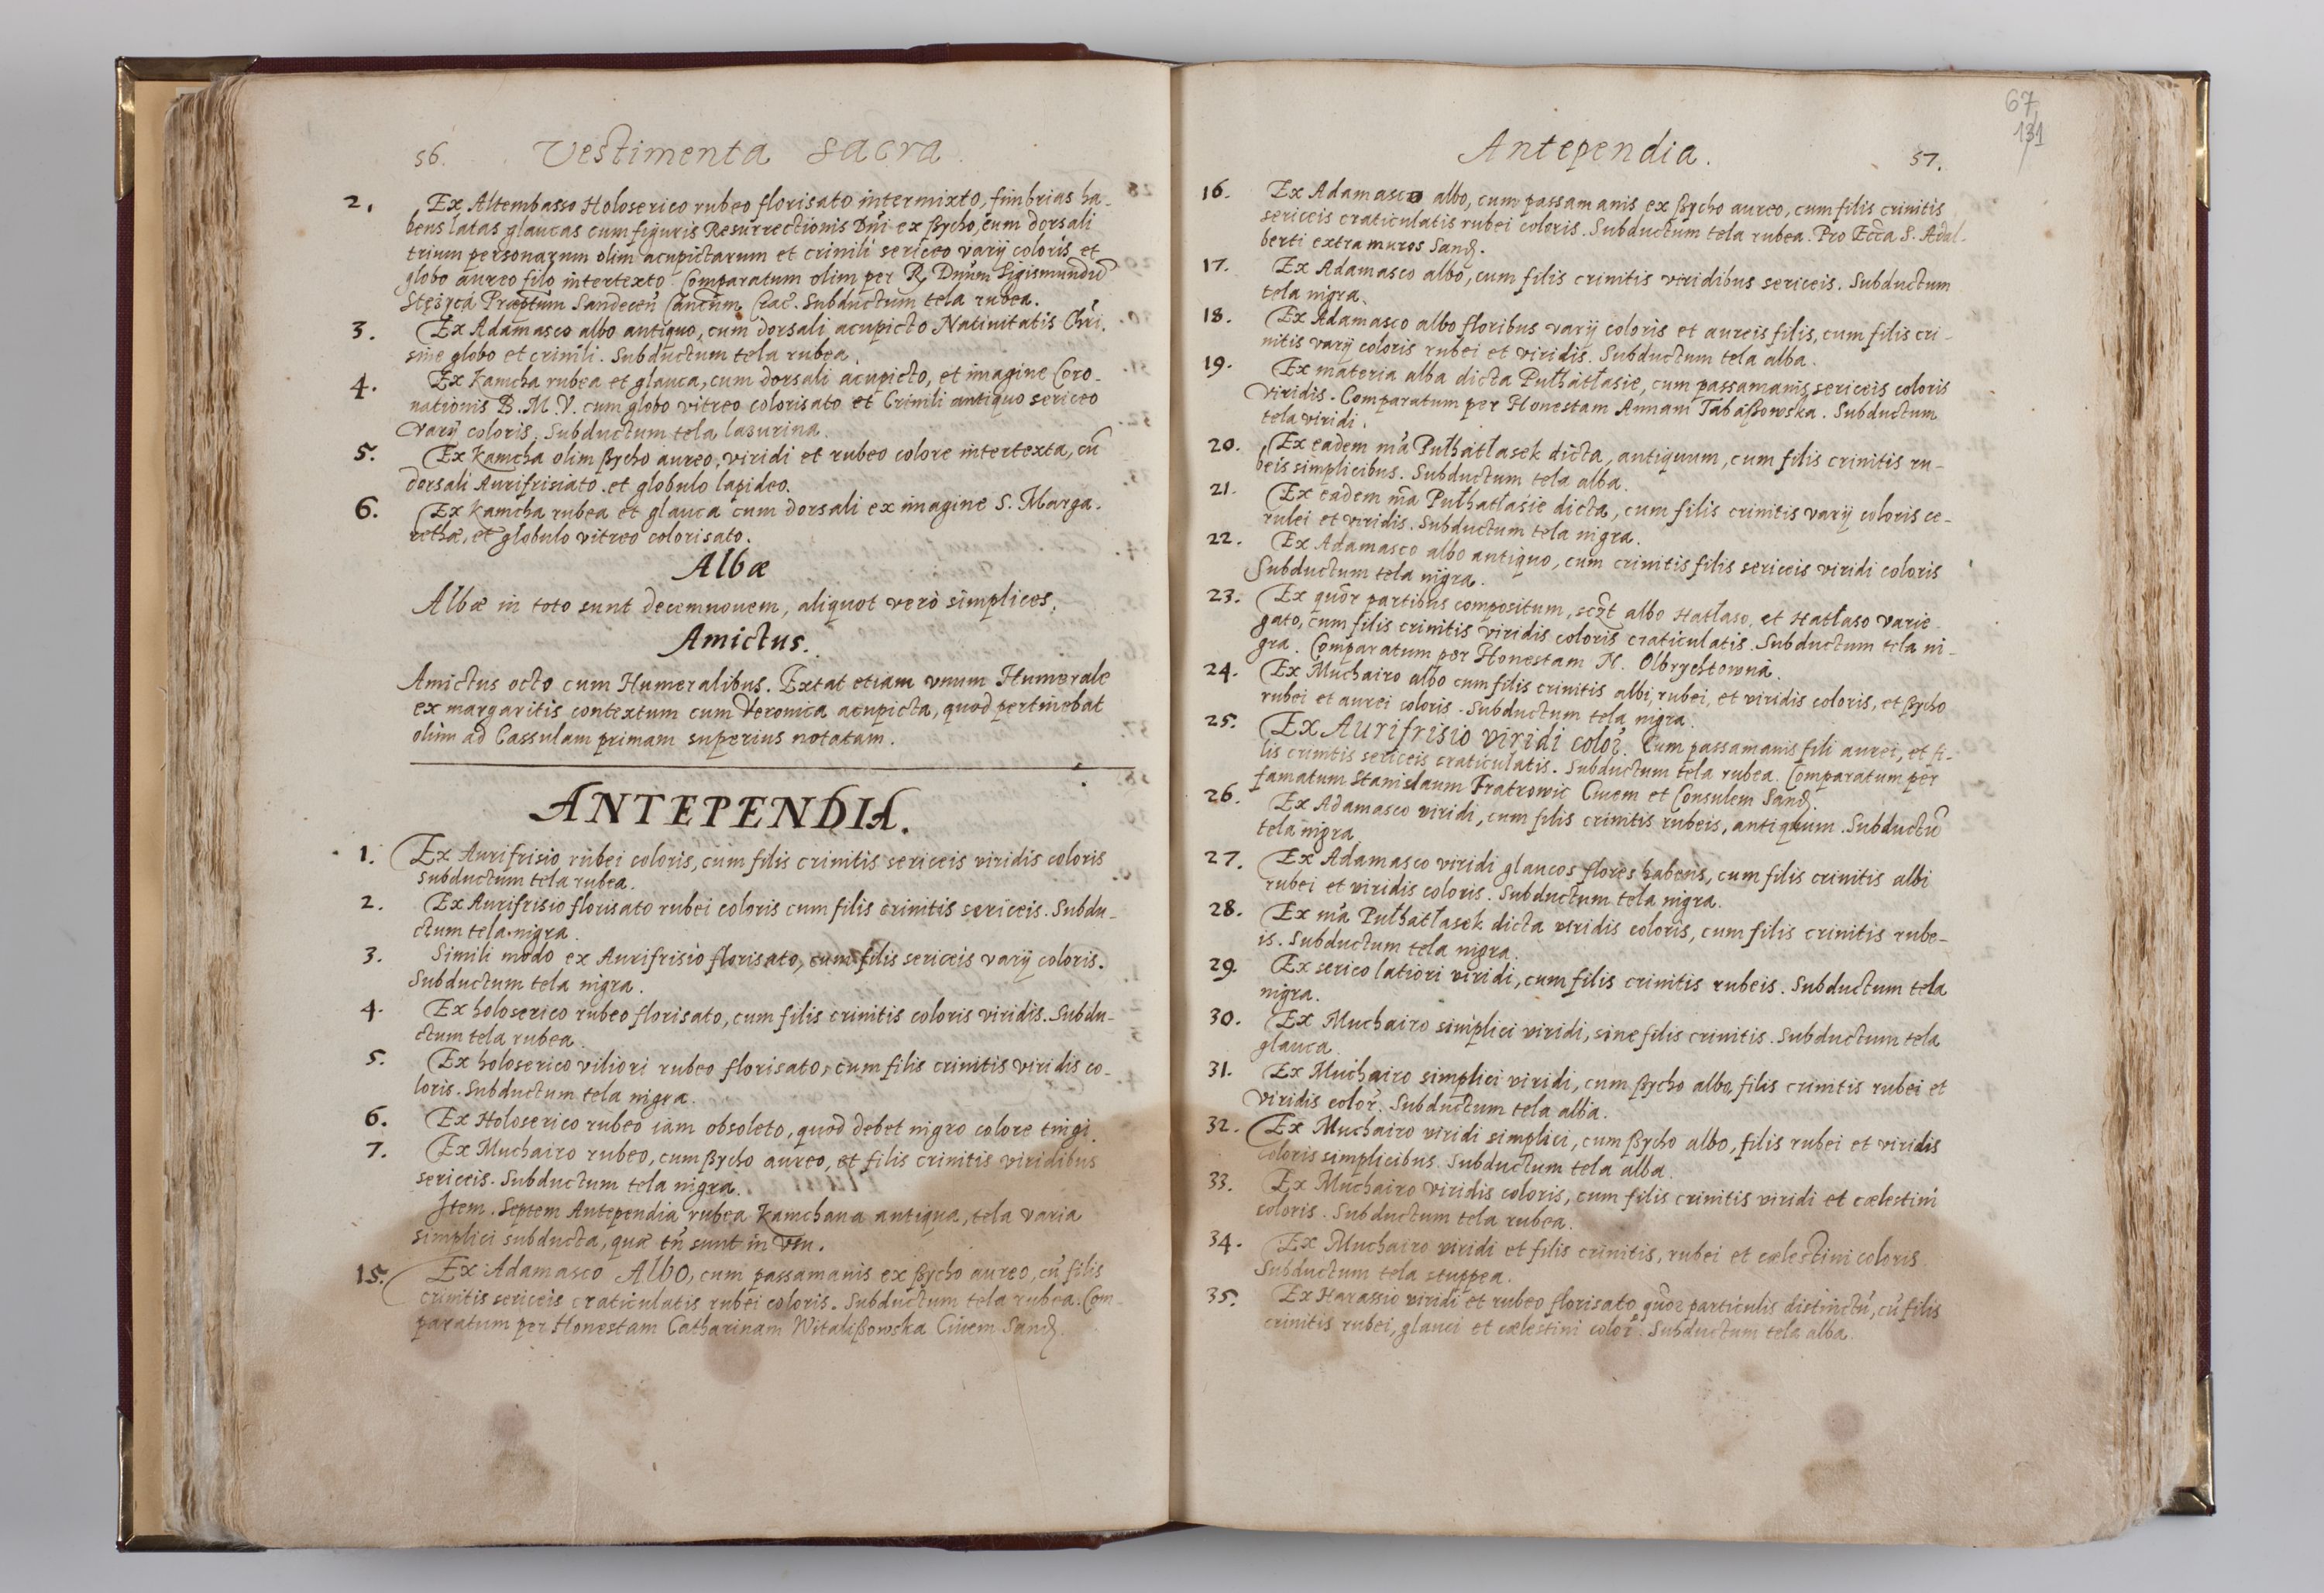 56. Vestimenta Sacra.
2. Ex Altembasso Holoserico rubeo florisato intermixto, fimbrias ha-
bens latas glaucas cum figuris Resurrectionis Dni ex ßycho, cum dorsali
trium personarum olim acupictarum et crinili sericeo varij coloris et
globo aureo filo intertexto. Comparatum olim per R. Dnum Sigismundũ
Præptum Sandecen Subductum tela rubea.
3. Ex Adamasco albo antiquo, cum dorsali acupicto Natiuitatis Chri,
sine globo et crinili. Subductum tela rubea.
4. Ex Kamcha rubea et glauca, cum dorsali acupicto, et imagine Coro-
nationis B. M. V. cum globo vitreo colorisato et Crinili antiquo sericeo
varij coloris. Subductum tela lazurina.
5. Ex Kamcha olim ßycho aureo, viridi et rubeo colore intertexta, cũ
dorsali Aurifrisiato et globulo lapideo.
6. Ex Kamcha rubea et glauca cum dorsali ex imagine S. Marga-
rethæ, et globulo vitreo colorisato.
Albæ
Albæ in toto sunt decemnouem, aliquot verò simplices.
Amictus.
Amictus octo cum Humeralibus. Extat etiam vnum Humerale
ex margaritis contextum cum Veronica acupicta, quod pertinebat
olim ad Cassulam primam superius notatam.
ANTEPENDIA.
1. Ex Aurifrisio rubei coloris, cum filis crinitis sericeis viridis coloris
subductum tela rubea.
2. Ex Aurifrisio florisato rubei coloris cum filis crinitis sericeis. Subdu-
ctum tela nigra.
3. Simili modo ex Aurifrisio florisato, cum filis sericeis varij coloris.
Subductum tela nigra.
4. Ex holoserico rubeo florisato, cum filis crinitis coloris viridis. Subdu-
ctum tela rubea.
5. Ex holoserico viliori rubeo florisato, cum filis crinitis viridis co-
loris. Subductum tela nigra.
6. Ex Holoserico rubeo iam obsoleto, quod debet nigro colore tingi.
7. Ex Muchairo rubeo, cum ßycho aureo, et filis crinitis viridibus
sericeis. Subductum tela nigra.
Item. Septem Antependia rubea Kamchana antiqua, tela varia
simplici subducta, quæ tñ sunt in vsu.
15. Ex Adamasco Albo, cum passamanis ex ßycho aureo, cũ filis
crinitis sericeis craticulatis rubei coloris. Subductum tela rubea. Com-
paratum per Honestam Catharinam Witalißowska Ciuem Sand.
67
131
Antependia. 57.
16. Ex Adamasco albo, cum passamanis, ex ßycho aureo, cum filis crinitis
sericeis craticulatis rubei coloris. Subductum tela rubea. Pro Eccã S. Adal-
berti extra muros Sand.
17. Ex Adamasco albo, cum filis crinitis viridibus sericeis. Subductum
tela nigra.
18. Ex Adamasco albo floribus varij coloris et aureis filis, cum filis cri-
nitis varij coloris rubei et viridis. Subductum tela alba.
19. Ex materia alba dicta Pułhatłasie, cum passamanis sericeis coloris
viridis. Comparatum per Honestam Annam Tabaßowska. Subductum
tela viridi.
20. Ex eadem mã Pułhatłasek dicta, antiquum, cum filis crinitis ru-
beis simplicibus. Subductum tela alba.
21. Ex eadem mã Pułhatłasie dicta, cum filis crinitis varij coloris ce-
rulei et viridis. Subductum tela nigra.
22. Ex Adamasco albo antiquo, cum crinitis filis sericeis viridi coloris
Subductum tela nigra.
23. Ex quõr partibus compositum, sczt albo Hatłaso, et Hatłaso varie-
gato, cum filis crinitis viridis coloris craticulatis. Subductum tela ni-
gra. Comparatum per Honestam N. Olbrychtowna.
24. Ex Muchairo albo cum filis crinitis albi, rubei, et viridis coloris, et ßycho
rubei et aurei coloris. Subductum tela nigra.
25. Ex Aurifrisio viridi color. Cum passamanis fili aurei, et fi-
lis crinitis sericeis craticulatis. Subductum tela rubea. Comparatum per
famatum Stanislaum Fratrowic Ciuem et Consulem Sand.
26. Ex Adamasco viridi, cum filis crinitis rubeis, antiquum. Subductũ
tela nigra
27. Ex Adamasco viridi glaucos flores habens, cum filis crinitis albi
rubei et viridis coloris. Subductum tela nigra.
28. Ex mã Pułhatłasek dicta viridis coloris, cum filis crinitis rube-
is. Subductum tela nigra.
29. Ex serico latiori viridi, cum filis crinitis rubeis. Subductum tela
nigra.
30. Ex Muchairo simplici viridi, sine filis crinitis. Subductum tela
glauca.
31. Ex Muchairo simplici viridi, cum ßycho albo, filis crinitis rubei et
viridis color. Subductum tela alba.
32. Ex Muchairo viridi simplici, cum ßycho albo, filis rubei et viridis
coloris simplicibus. Subductum tela alba.
33. Ex Muchairo viridis coloris, cum filis crinitis viridi et cælestini
coloris. Subductum tela rubea.
34. Ex Muchairo viridi et filis crinitis, rubei et cælestini coloris
Subductum tela stuppea.
35. Ex Harassio viridi et rubeo florisato quõr particulis distinctũ, cũ filis
crinitis rubei, glauci et cælestini color. Subductum tela alba.